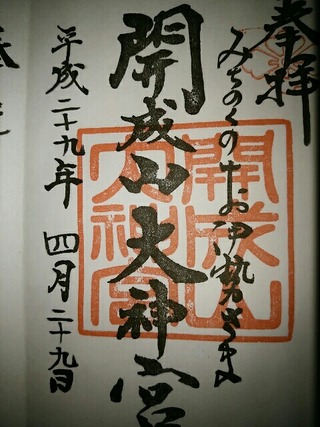 奉拝
みちのくのお伊勢さま
開成山大神宮
平成二十九年 四月二十九日
開成山大神宮